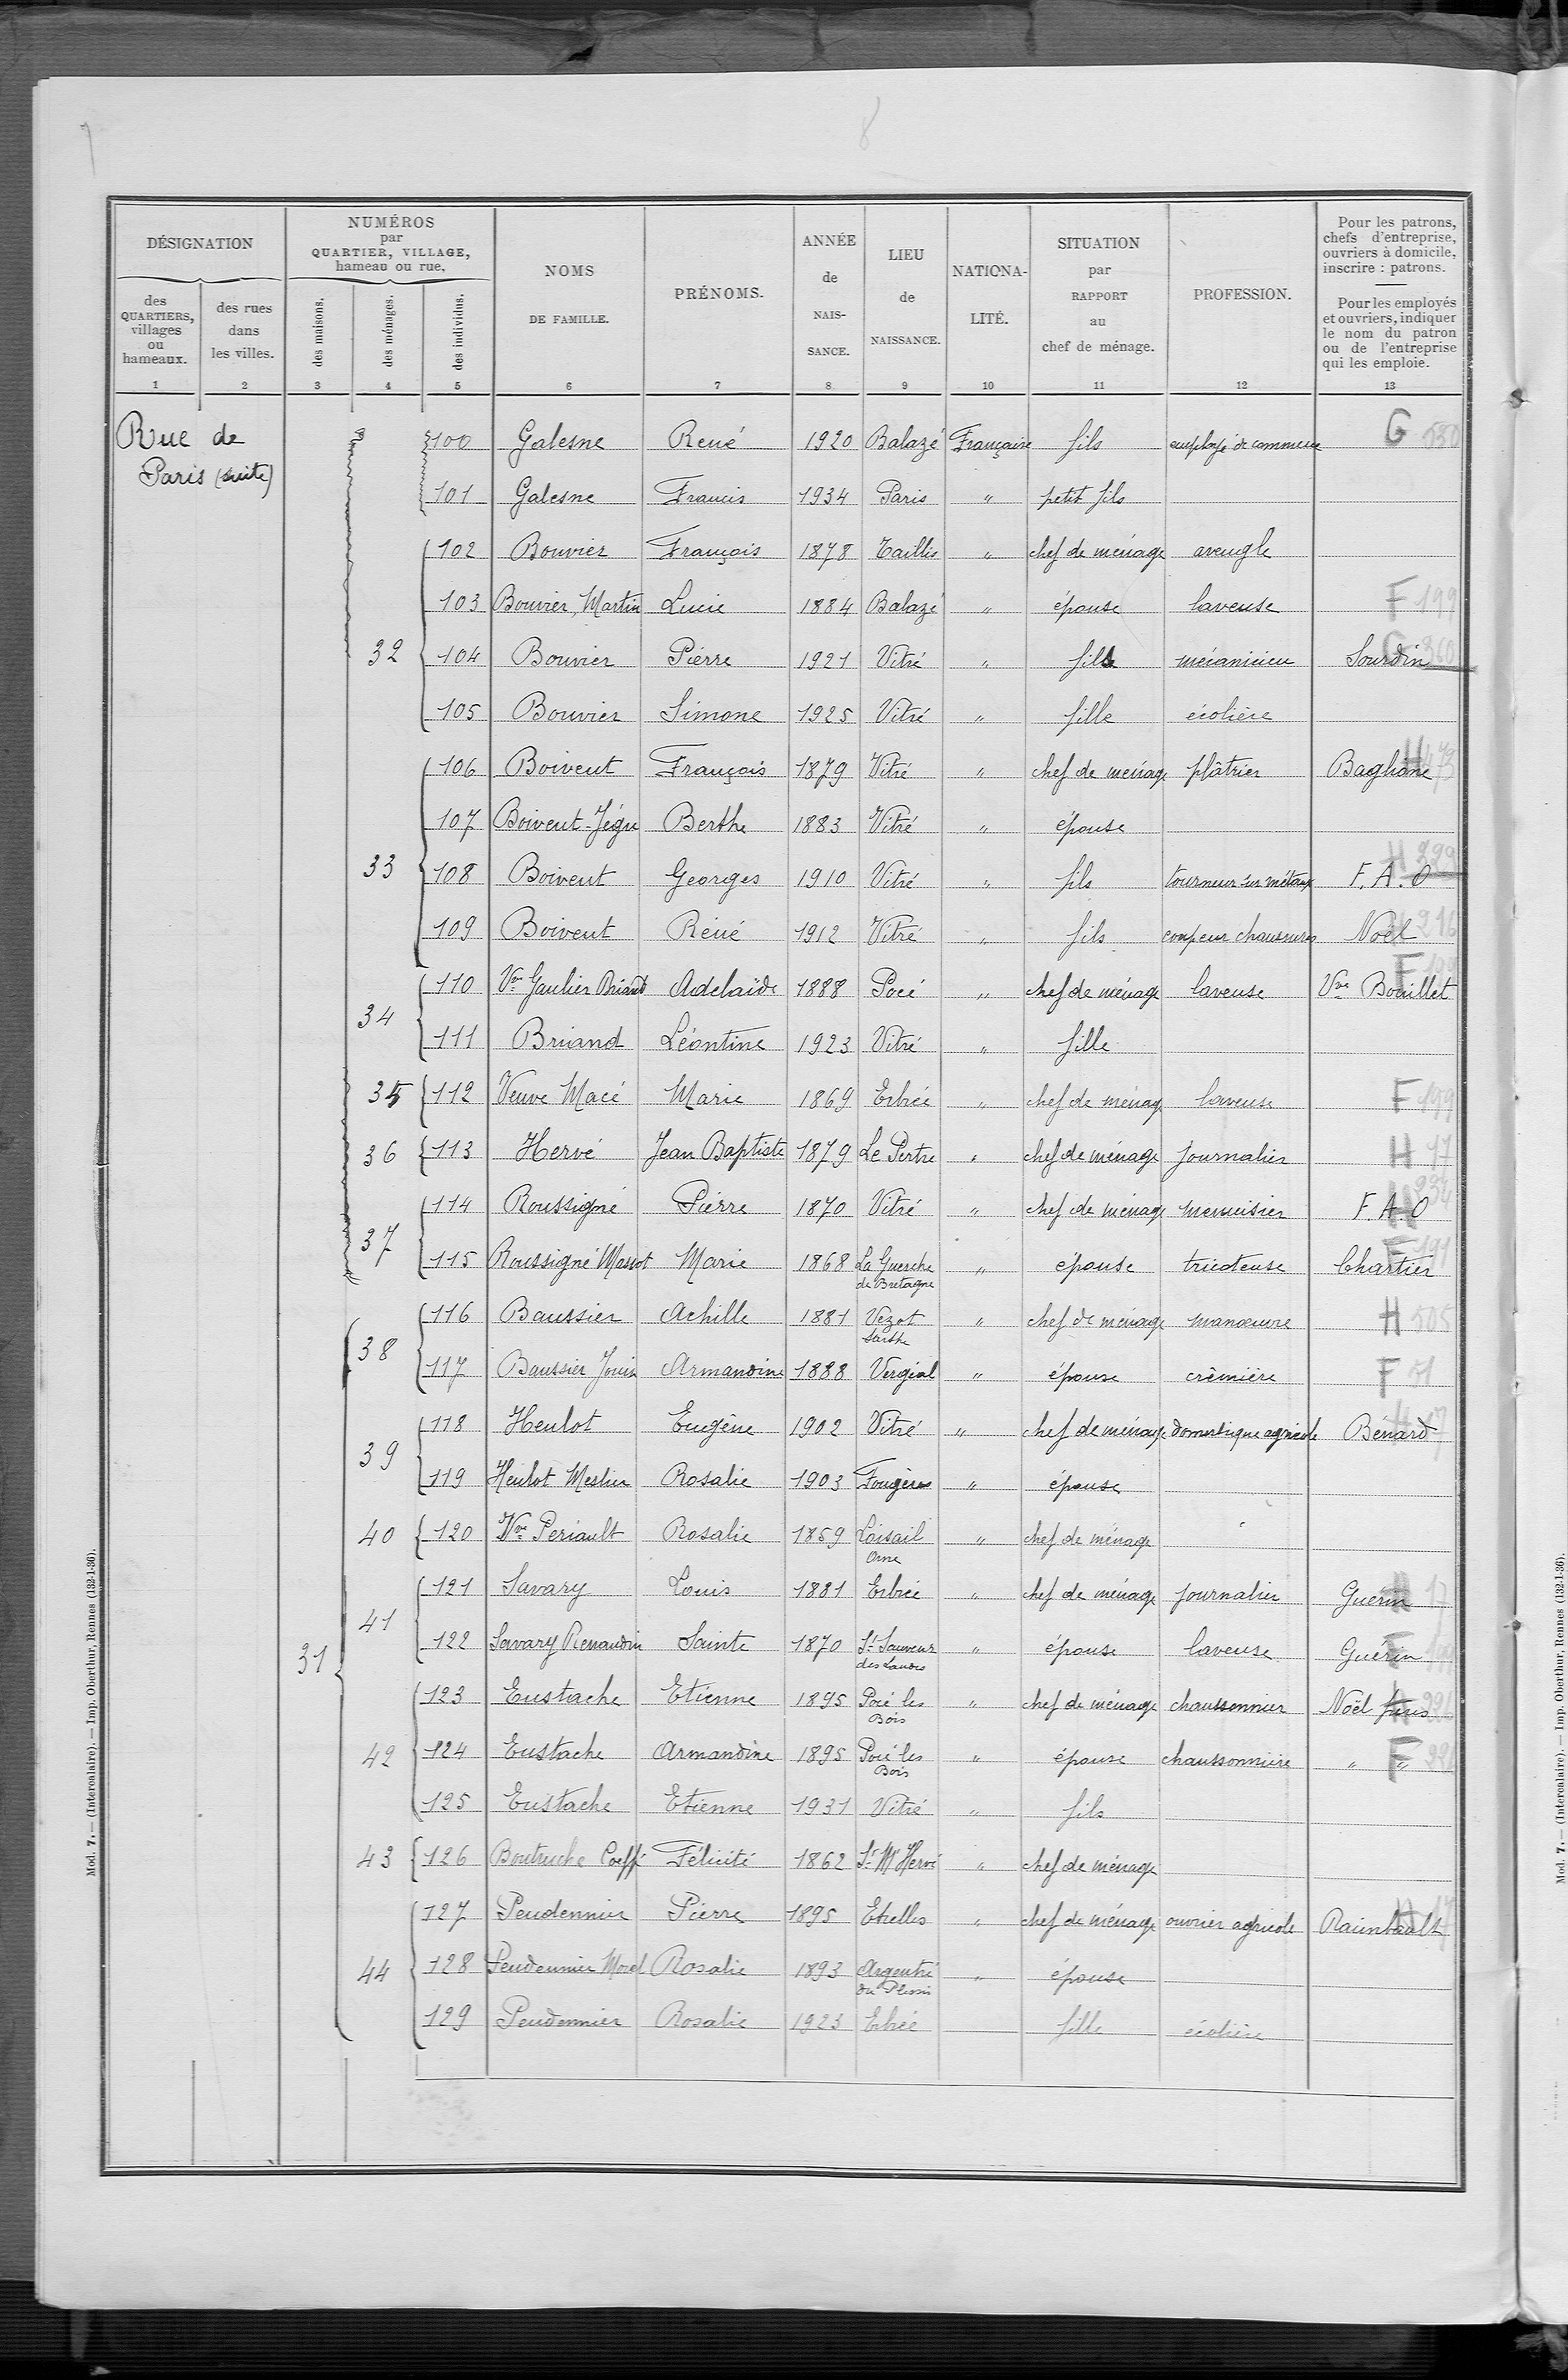 8
DÉSIGNATION
des QUARTIERS, villages ou hameaux.
des rues dans les villes.
NUMÉROS par QUARTIER, VILLAGE, hameau ou rue,
des maisons.
des ménages.
des individus.
NOMS DE FAMILLE.
PRÉNOMS.
ANNÉE de NAIS-SANCE.
LIEU de NAISSANCE.
NATIONA-LITÉ.
SITUATION par RAPPORT au chef de ménage.
PROFESSION.
Pour les patrons, chefs d'entreprise, ouvriers à domicile, inscrire : patrons.
Pour les employés et ouvriers, indiquer le nom du patron ou de l'entreprise qui les emploie.
1 2 3 4 5 6 7 8 9 10 11 12 13
Rue de
Paris (suite)
100 Galesne René 1920 Balazé Française fils employé de commerce G 550
101 Galesne Francis 1934 Paris " petit fils
102 Bouvier François 1878 Taillis " chef de ménage aveugle
103 Bouvier, Martin Lucie 1884 Balazé " épouse laveuse F 199
32 104 Bouvier Pierre 1921 Vitré " fils mécanicien Sourdin G 360
105 Bouvier Simone 1925 Vitré " fille écolière
106 Boivent François 1879 Vitré " chef de ménage plâtrier Baglione H 473
107 Boivent-Jégu Berthe 1883 Vitré " épouse
33 108 Boivent Georges 1910 Vitré " fils tourneur sur métaux F.A.O H 329
109 Boivent René 1912 Vitré " fils coupeur chaussures Noël 216
110 Vve Gaulier Briand Adelaïde 1888 Pocé " chef de ménage laveuse Vve Bouillet F 199
34
111 Briand Léontine 1923 Vitré " fille
35 112 Veuve Macé Marie 1869 Erbrée " chef de ménag laveuse F 199
36 113 Hervé Jean Baptiste 1879 Le Pertre " chef de ménage journalier H 17
114 Roussigné Pierre 1870 Vitré " chef de ménage menuisier F.A.O H 234
37
115 Roussigné Massot Marie 1868 La Guerche de Bretagne " épouse tricoteuse Chartier F 191
116 Baussier Achille 1881 Vezot Sarthe " chef de ménage manœuvre H 505
38
117 Baussier Jouin Armandine 1888 Vergéal " épouse crêmière F 51
118 Heulot Eugène 1902 Vitré " chef de ménage domestique agricole Bénard H 17
39
119 Heulot Meslier Rosalie 1903 Fougères " épouse
40 120 Vve Periault Rosalie 1859 Loisail Orne " chef de ménage
121 Savary Louis 1881 Erbrée " chef de ménage journalier Guérin H 17
41
122 Savary Renaudin Sainte 1870 St Sauveur des Landes " épouse laveuse Guérin F 199
31
123 Eustache Etienne 1895 Pocé les Bois " chef de ménage chaussonnier Noël frères H 221
42 124 Eustache Armandine 1895 Pocé les Bois " épouse chaussonnière " " F 221
125 Eustache Etienne 1931 Vitré " fils
43 126 Boutruche Coeffé Félicité 1862 St M' Hervé " chef de ménage
127 Peudennier Pierre 1895 Etrelles " chef de ménage ouvrier agricole Raimbault H 17
44 128 Peudennier Morel Rosalie 1893 Argentré du Plessis " épouse
129 Peudennier Rosalie 1923 Erbrée fille écolière
Mod. 7. — (Intercalaire). — Imp. Oberthur, Rennes (132-1-36).
Mod. 7. — (Intercalaire). — Imp. Oberthur, Rennes (132-1-36).